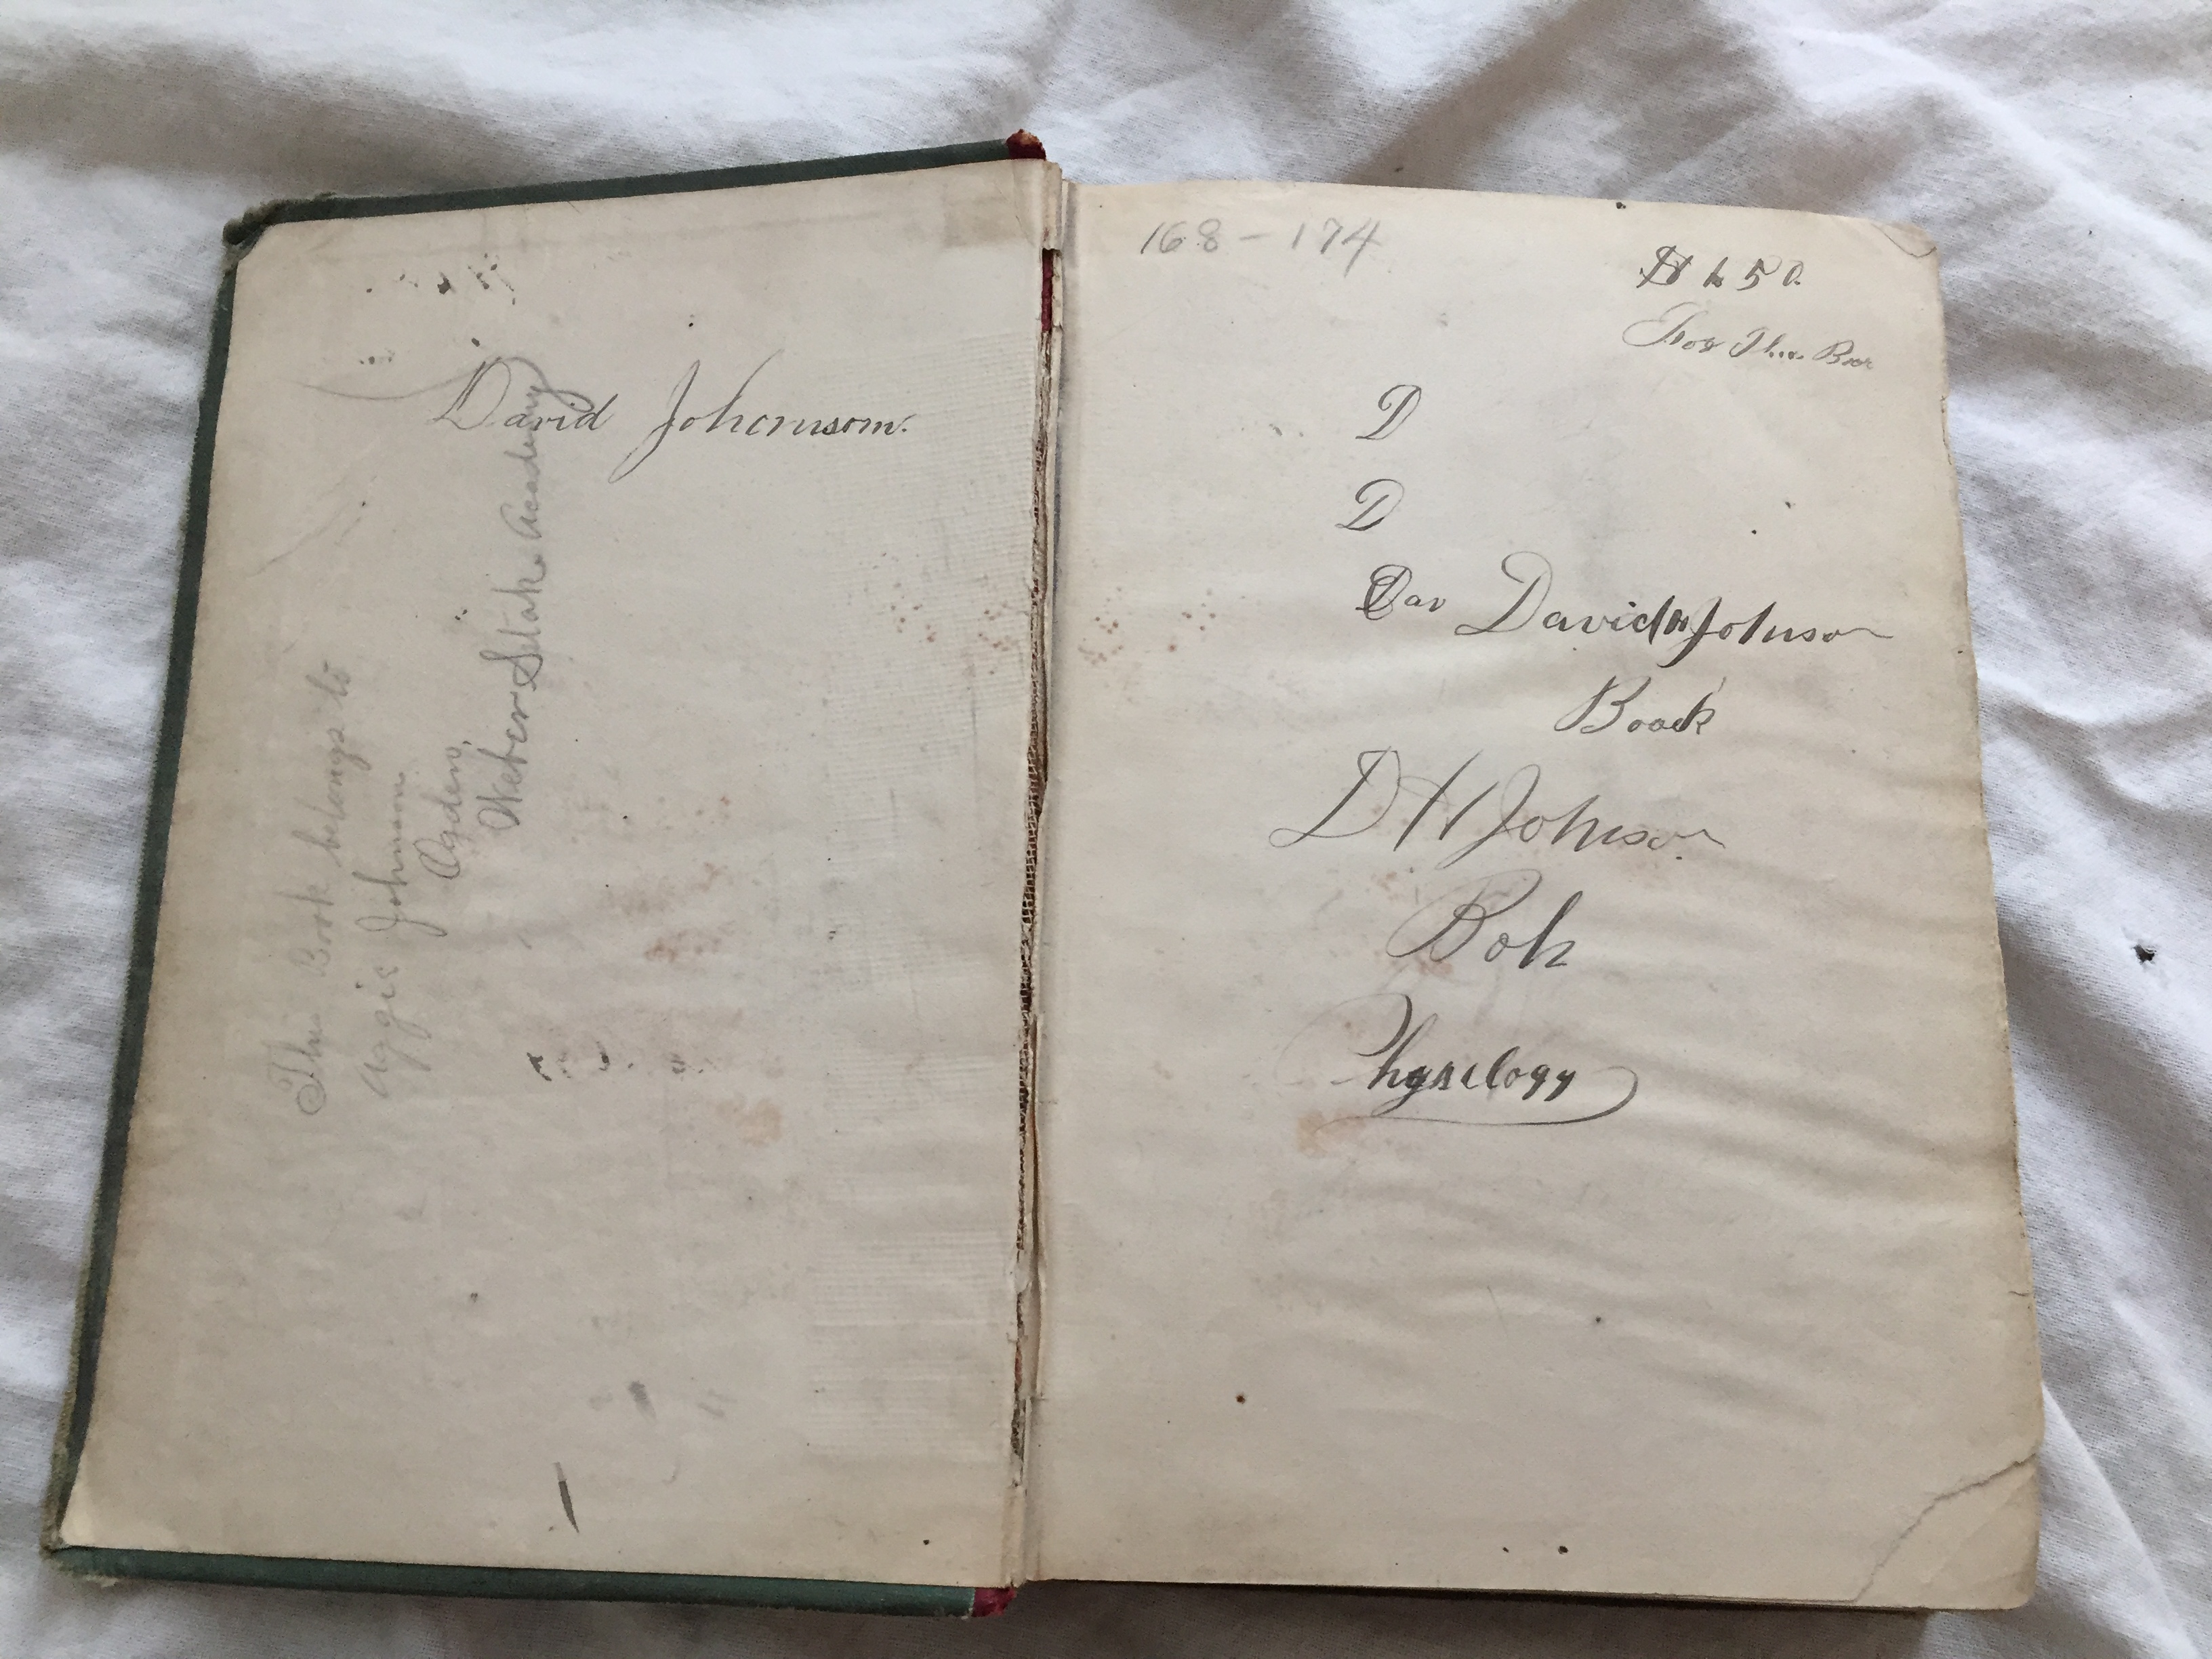 David Johonnsom.
This Book belongs to
Aggie Johnson
Ogden,
Weber Stake Academy
168-174
$1.50.
For The
D
D
Dav David H Johnson
Boock
D H Johnson
Bok
Physelogy